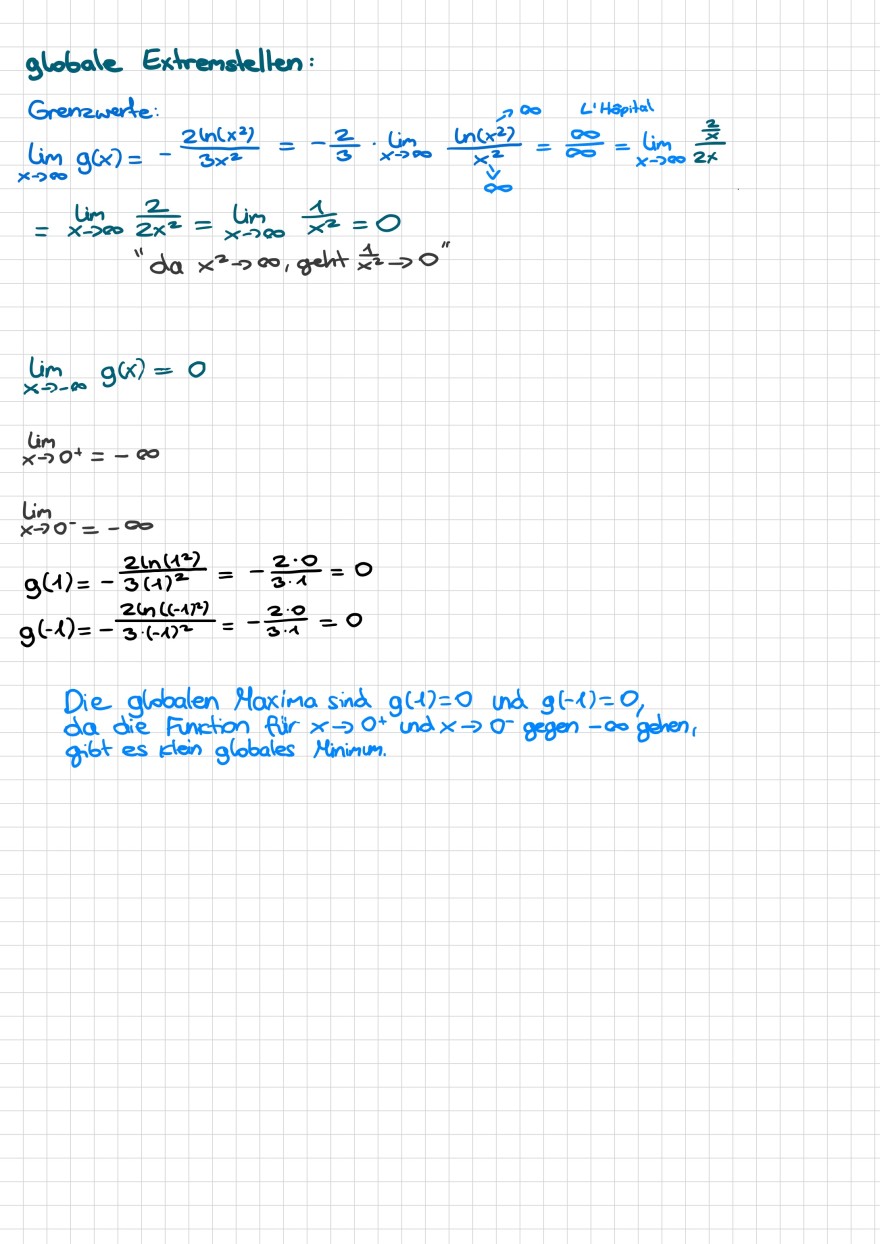 globale Extremstellen:
Grenzwerte:
lim x→∞ g(x) = - 2ln(x²)/3x² = - 2/3 · lim x→∞ ln(x²)→∞ / x²→∞ = ∞/∞ L'Hôpital = lim x→∞ (2/x)/2x
= lim x→∞ 2/2x² = lim x→∞ 1/x² = 0
"da x²→∞, geht 1/x²→0"
lim x→-∞ g(x) = 0
lim x→0⁺ = -∞
lim x→0⁻ = -∞
g(1) = - 2ln(1²)/3(1)² = - 2·0/3·1 = 0
g(-1) = - 2ln((-1)²)/3·(-1)² = - 2·0/3·1 = 0
Die globalen Maxima sind g(1)=0 und g(-1)=0,
da die Function für x→0⁺ und x→0⁻ gegen -∞ gehen,
gibt es klein globales Minimum.